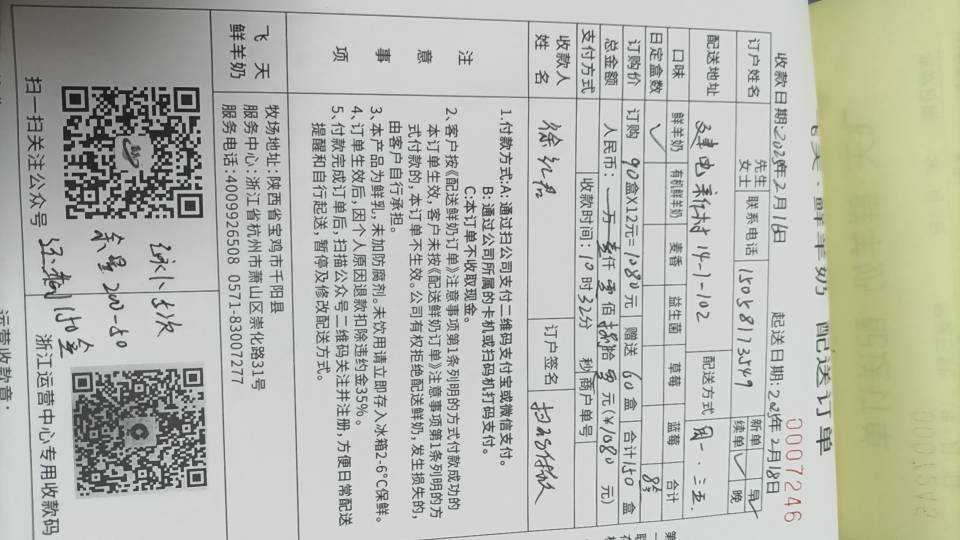 鲜羊奶 配送订单
0007246
收款日期:2025年2月16日 起送日期:2025年2月18日
订户姓名 先生 女士 联系电话 15058173549 新单 续单 ✓ 早 ✓ 晚
配送地址 14-1-102 配送方式 周一.三五.
口味 鲜羊奶 有机鲜羊奶 麦香 益生菌 草莓 蓝莓 合计
日定盒数 ✓
订购价 订购 90盒X12元= 1080元 赠送 60盒 合计150盒
总金额 人民币: 万 壹仟 零佰 捌拾 零元(¥1080 元)
支付方式 收款时间:10时32分 秒 商户单号
收款人姓名 订户签名
注意事项
1.付款方式:A:通过扫公司支付二维码支付宝或微信支付。
B:通过公司所属的卡机或扫码机打码支付。
C:本订单不收取现金。
2、客户按《配送鲜奶订单》注意事项第1条列明的方式付款成功的
本订单生效,客户未按《配送鲜奶订单》注意事项第1条列明的方
式付款的,本订单不生效。公司有权拒绝配送鲜奶,发生损失的,
由客户自行承担。
3、本产品为鲜乳,未加防腐剂。未饮用请立即存入冰箱2-6°C保鲜。
4、订单生效后,因个人原因退款扣除违约金35%。
5、付款完成订单后,扫描公众号二维码关注并注册,方便日常配送
提醒和自行起送,暂停及修改配送方式。
飞天鲜羊奶
牧场地址:陕西省宝鸡市千阳县
服务中心:浙江省杭州市萧山区崇化路31号
服务电话:4009926508 0571-83007277
余量 200-50
150盒
扫一扫关注公众号
浙江运营中心专用收款码
运营收款章: